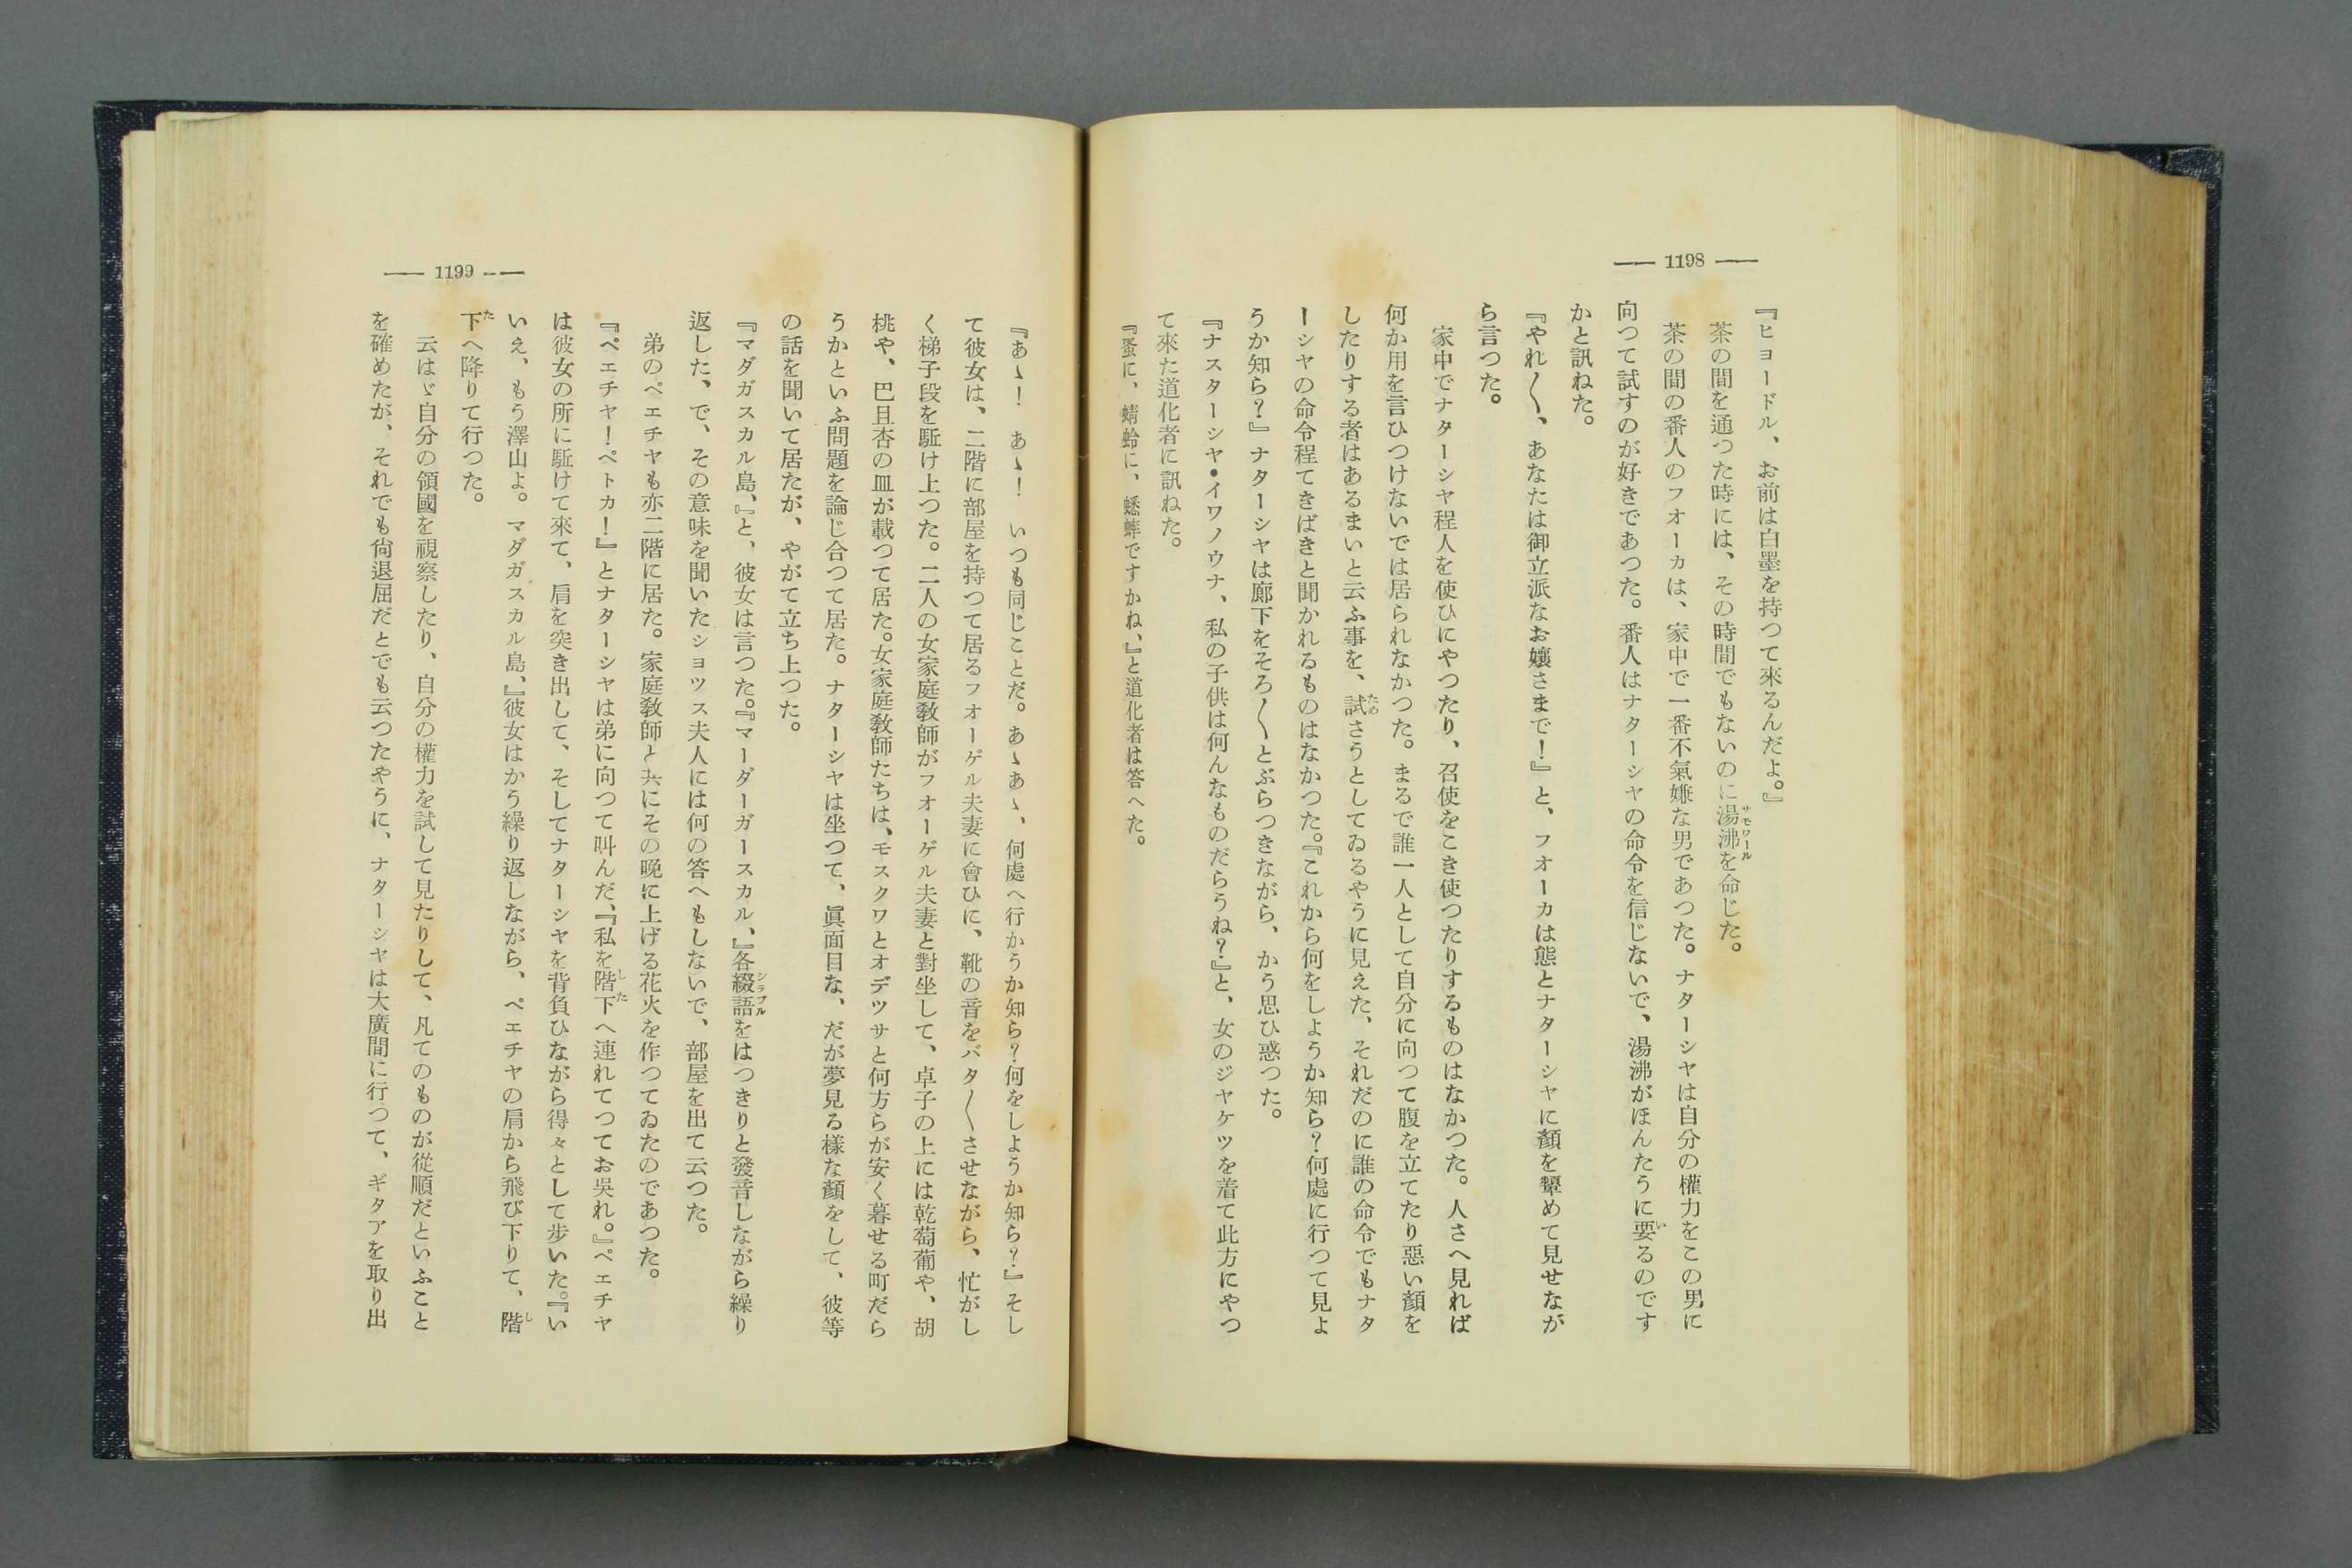 — 1198 —
『ヒヨードル、お前は白墨を持つて來るんだよ。』
茶の間を通つた時には、その時間でもないのに湯沸を命じた。
茶の間の番人のフオーカは、家中で一番不氣嫌な男であつた。ナターシヤは自分の權力をこの男に
向つて試すのが好きであつた。番人はナターシヤの命令を信じないで、湯沸がほんたうに要るのです
かと訊ねた。
『やれ〳〵、あなたは御立派なお孃さまで！』と、フオーカは態とナターシヤに顏を顰めて見せなが
ら言つた。
家中でナターシヤ程人を使ひにやつたり、召使をこき使つたりするものはなかつた。人さへ見れば
何か用を言ひつけないでは居られなかつた。まるで誰一人として自分に向つて腹を立てたり惡い顏を
したりする者はあるまいと云ふ事を、試さうとしてゐるやうに見えた、それだのに誰の命令でもナタ
ーシヤの命令程てきぱきと聞かれるものはなかつた。『これから何をしようか知ら？何處に行つて見よ
うか知ら？』ナターシヤは廊下をそろ〳〵とぶらつきながら、かう思ひ惑つた。
『ナスターシヤ・イワノウナ、私の子供は何んなものだらうね？』と、女のジヤケツを着て此方にやつ
て來た道化者に訊ねた。
『蚤に、蜻蛉に、蟋蟀ですかね、』と道化者は答へた。
— 1199 —
『あゝ！　あゝ！　いつも同じことだ。あゝあゝ、何處へ行かうか知ら？何をしようか知ら？』そし
て彼女は、二階に部屋を持つて居るフオーゲル夫妻に會ひに、靴の音をバタ〳〵させながら、忙がし
く梯子段を駈け上つた。二人の女家庭敎師がフオーゲル夫妻と對坐して、卓子の上には乾萄葡や、胡
桃や、巴且杏の皿が載つて居た。女家庭敎師たちは、モスクワとオデツサと何方らが安く暮せる町だら
うかといふ問題を論じ合つて居た。ナターシヤは坐つて、眞面目な、だが夢見る樣な顏をして、彼等
の話を聞いて居たが、やがて立ち上つた。
『マダガスカル島、』と、彼女は言つた。『マーダーガースカル、』各綴語をはつきりと發音しながら繰り
返した、で、その意味を聞いたシヨツス夫人には何の答へもしないで、部屋を出て云つた。
弟のペエチヤも亦二階に居た。家庭敎師と共にその晩に上げる花火を作つてゐたのであつた。
『ペエチヤ！ペトカ！』とナターシヤは弟に向つて叫んだ、『私を階下へ連れてつてお吳れ。』ペエチヤ
は彼女の所に駈けて來て、肩を突き出して、そしてナターシヤを背負ひながら得々として步いた。『い
いえ、もう澤山よ。マダガスカル島、』彼女はかう繰り返しながら、ペエチヤの肩から飛び下りて、階
下へ降りて行つた。
云はゞ自分の領國を視察したり、自分の權力を試して見たりして、凡てのものが從順だといふこと
を確めたが、それでも尙退屈だとでも云つたやうに、ナターシヤは大廣間に行つて、ギタアを取り出